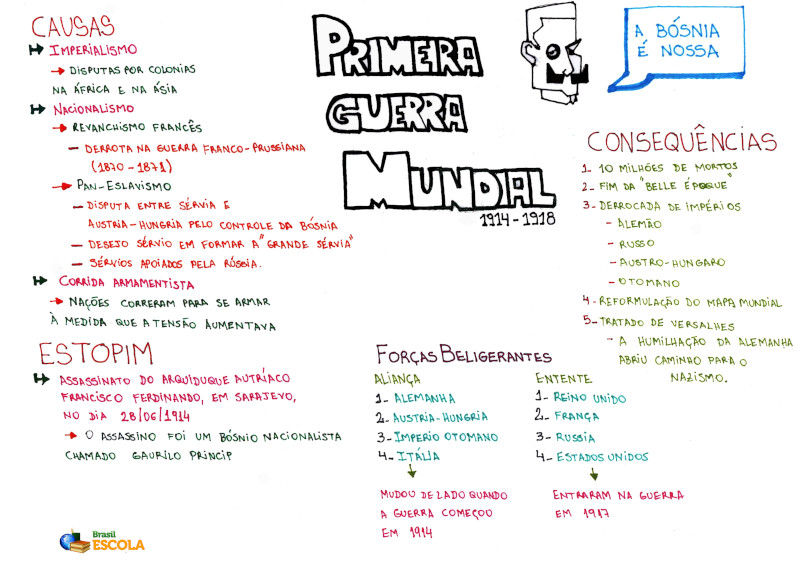 PRIMEIRA
GUERRA
MUNDIAL
1914-1918
A BÓSNIA
É NOSSA
CAUSAS
IMPERIALISMO
DISPUTAS POR COLONIAS
NA ÁFRICA E NA ÁSIA
NACIONALISMO
REVANCHISMO FRANCÊS
- DERROTA NA GUERRA FRANCO-PRUSSIANA
(1870-1871)
PAN-ESLAVISMO
- DISPUTA ENTRE SÉRVIA E
AUSTRIA-HUNGRIA PELO CONTROLE DA BÓSNIA
- DESEJO SÉRVIO EM FORMAR A "GRANDE SÉRVIA"
- SÉRVIOS APOIADOS PELA RÚSSIA.
CORRIDA ARMAMENTISTA
NAÇÕES CORRERAM PARA SE ARMAR
À MEDIDA QUE A TENSÃO AUMENTAVA
ESTOPIM
ASSASSINATO DO ARQUIDUQUE AUTRÍACO
FRANCISCO FERDINANDO, EM SARAJEVO,
NO DIA 28/06/1914
O ASSASSINO FOI UM BÓSNIO NACIONALISTA
CHAMADO GAURILO PRINCIP
FORÇAS BELIGERANTES
ALIANÇA
1- ALEMANHA
2- AUSTRIA-HUNGRIA
3- IMPERIO OTOMANO
4- ITÁLIA
MUDOU DE LADO QUANDO
A GUERRA COMEÇOU
EM 1914
ENTENTE
1- REINO UNIDO
2- FRANÇA
3- RUSSIA
4- ESTADOS UNIDOS
ENTRARAM NA GUERRA
EM 1917
CONSEQUÊNCIAS
1- 10 MILHÕES DE MORTOS
2- FIM DA "BELLE ÉPOQUE"
3- DERROCADA DE IMPÉRIOS
- ALEMÃO
- RUSSO
- AUSTRO-HUNGARO
- OTOMANO
4- REFORMULAÇÃO DO MAPA MUNDIAL
5- TRATADO DE VERSALHES
- A HUMILHAÇÃO DA ALEMANHA
ABRIU CAMINHO PARA O
NAZISMO.
Brasil
ESCOLA